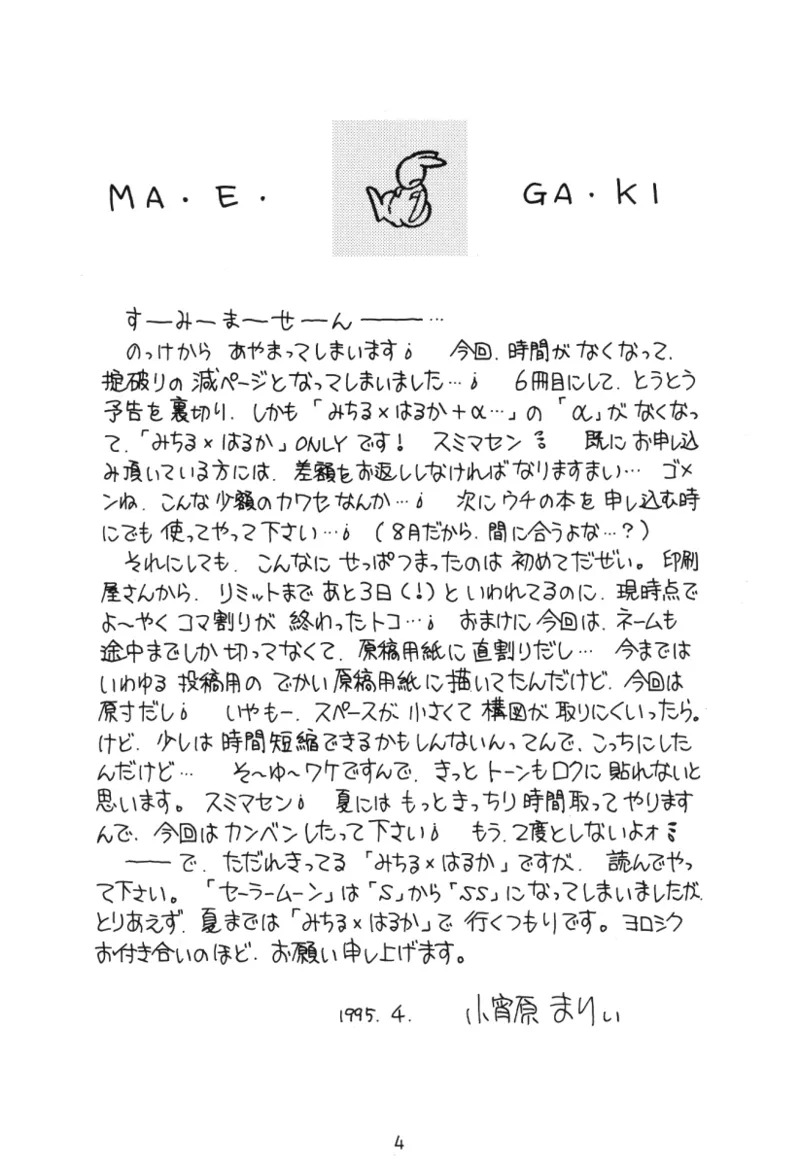 MA・E・ GA・KI
すーみーまーせーん───…
のっけから あやまってしまいます💧 今回、時間が なくなって、
掟破りの 減ページとなってしまいました…💧 6冊目にして、とうとう
予告を 裏切り、しかも 「みちる×はるか+α…」の 「α」が なくなっ
て、「みちる×はるか」ONLY です! スミマセン💧 既に お申し込
み頂いている方には、差額を お返ししなければ なりますまい… ゴメ
ンね、こんな 少額の カワセなんか…💧 次に ウチの本を 申し込む時
にでも 使ってやって下さい…💧 (8月だから、間に合うよな…?)
それにしても、こんなに せっぱつまったのは 初めてだぜい。印刷
屋さんから、リミットまで あと3日(!)と いわれてるのに、現時点で
よ〜やく コマ割りが 終わったトコ…💧 おまけに 今回は、ネームも
途中までしか 切ってなくて、原稿用紙に 直割りだし… 今までは
いわゆる 投稿用の でかい 原稿用紙に 描いてたんだけど、今回は
原寸だし💧 いやもー、スペースが 小さくて 構図が 取りにくいったら。
けど、少しは 時間短縮できるかもしんないんってんで、こっちにした
んだけど… そ〜ゆ〜ワケですんで、きっと トーンもロクに 貼れないと
思います。スミマセン💧 夏には もっと きっちり 時間取って やります
んで、今回は カンベンしたって 下さい💧 もう、2度としないよォ💧
───で、ただれきってる 「みちる×はるか」ですが、 読んでやっ
て下さい。 「セーラームーン」は 「S」から 「SS」に なってしまいましたが、
とりあえず、夏までは 「みちる×はるか」で 行くつもりです。ヨロシク
お付き合いのほど、お願い申し上げます。
1995. 4. 小宵原 まりい
4